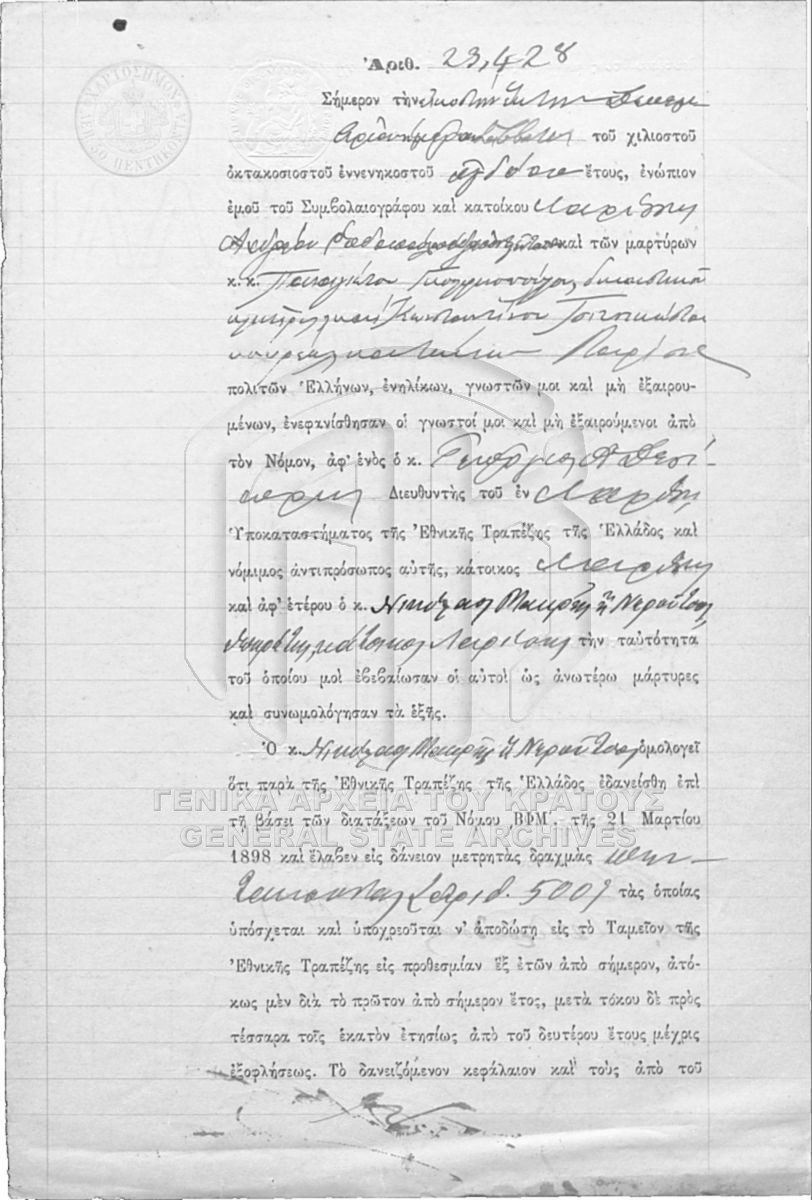 ΧΑΡΤΟΣΗΜΟΝ
Ἀριθ. 23,428
Σήμερον τὴν εἰκοστὴν ἕκτην Δεκεμ
βρίου ἡμέραν Σάββατον τοῦ χιλιοστοῦ
ὀκτακοσιοστοῦ ἐννενηκοστοῦ ὀγδόου ἔτους, ἐνώπιον
ἐμοῦ τοῦ Συμβολαιογράφου καὶ κατοίκου Λαρίσης
Ἀνδρέου καὶ τῶν μαρτύρων
κ. κ. Παναγιώτου δικαστικοῦ
κλητῆρος καὶ Κωνσταντίνου
κουρέως κατοίκων Λαρίσης
πολιτῶν Ἑλλήνων, ἐνηλίκων, γνωστῶν μοι καὶ μὴ ἐξαιρου-
μένων, ἐνεφανίσθησαν οἱ γνωστοί μοι καὶ μὴ ἐξαιρούμενοι ἀπὸ
τὸν Νόμον, ἀφ' ἑνὸς ὁ κ. Γεώργιος
Διευθυντὴς τοῦ ἐν Λαρίσῃ
Ὑποκαταστήματος τῆς Ἐθνικῆς Τραπέζης τῆς Ἑλλάδος καὶ
νόμιμος ἀντιπρόσωπος αὐτῆς, κάτοικος Λαρίσης
καὶ ἀφ' ἑτέρου ὁ κ. Νικόλαος Μακρῆς ἢ Νεροῦτσος
κάτοικος Λαρίσης τὴν ταὐτότητα
τοῦ ὁποίου μοὶ ἐβεβαίωσαν οἱ αὐτοὶ ὡς ἀνωτέρω μάρτυρες
καὶ συνωμολόγησαν τὰ ἑξῆς.
Ὁ κ. Νικόλαος Μακρῆς ἢ Νεροῦτσος ὁμολογεῖ
ὅτι παρὰ τῆς Ἐθνικῆς Τραπέζης τῆς Ἑλλάδος ἐδανείσθη ἐπὶ
ΓΕΝΙΚΑ ΑΡΧΕΙΑ ΤΟΥ ΚΡΑΤΟΥΣ
τῇ βάσει τῶν διατάξεων τοῦ Νόμου ͵ΒΦΜʹ. τῆς 21 Μαρτίου
GENERAL STATE ARCHIVES
1898 καὶ ἔλαβεν εἰς δάνειον μετρητὰς δραχμὰς πεν-
τακοσίας (ἀριθ. 500) τὰς ὁποίας
ὑπόσχεται καὶ ὑποχρεοῦται ν' ἀποδώσῃ εἰς τὸ Ταμεῖον τῆς
Ἐθνικῆς Τραπέζης εἰς προθεσμίαν ἓξ ἐτῶν ἀπὸ σήμερον, ἀτό-
κως μὲν διὰ τὸ πρῶτον ἀπὸ σήμερον ἔτος, μετὰ τόκου δὲ πρὸς
τέσσαρα τοῖς ἑκατὸν ἐτησίως ἀπὸ τοῦ δευτέρου ἔτους μέχρις
ἐξοφλήσεως. Τὸ δανειζόμενον κεφάλαιον καὶ τοὺς ἀπὸ τοῦ